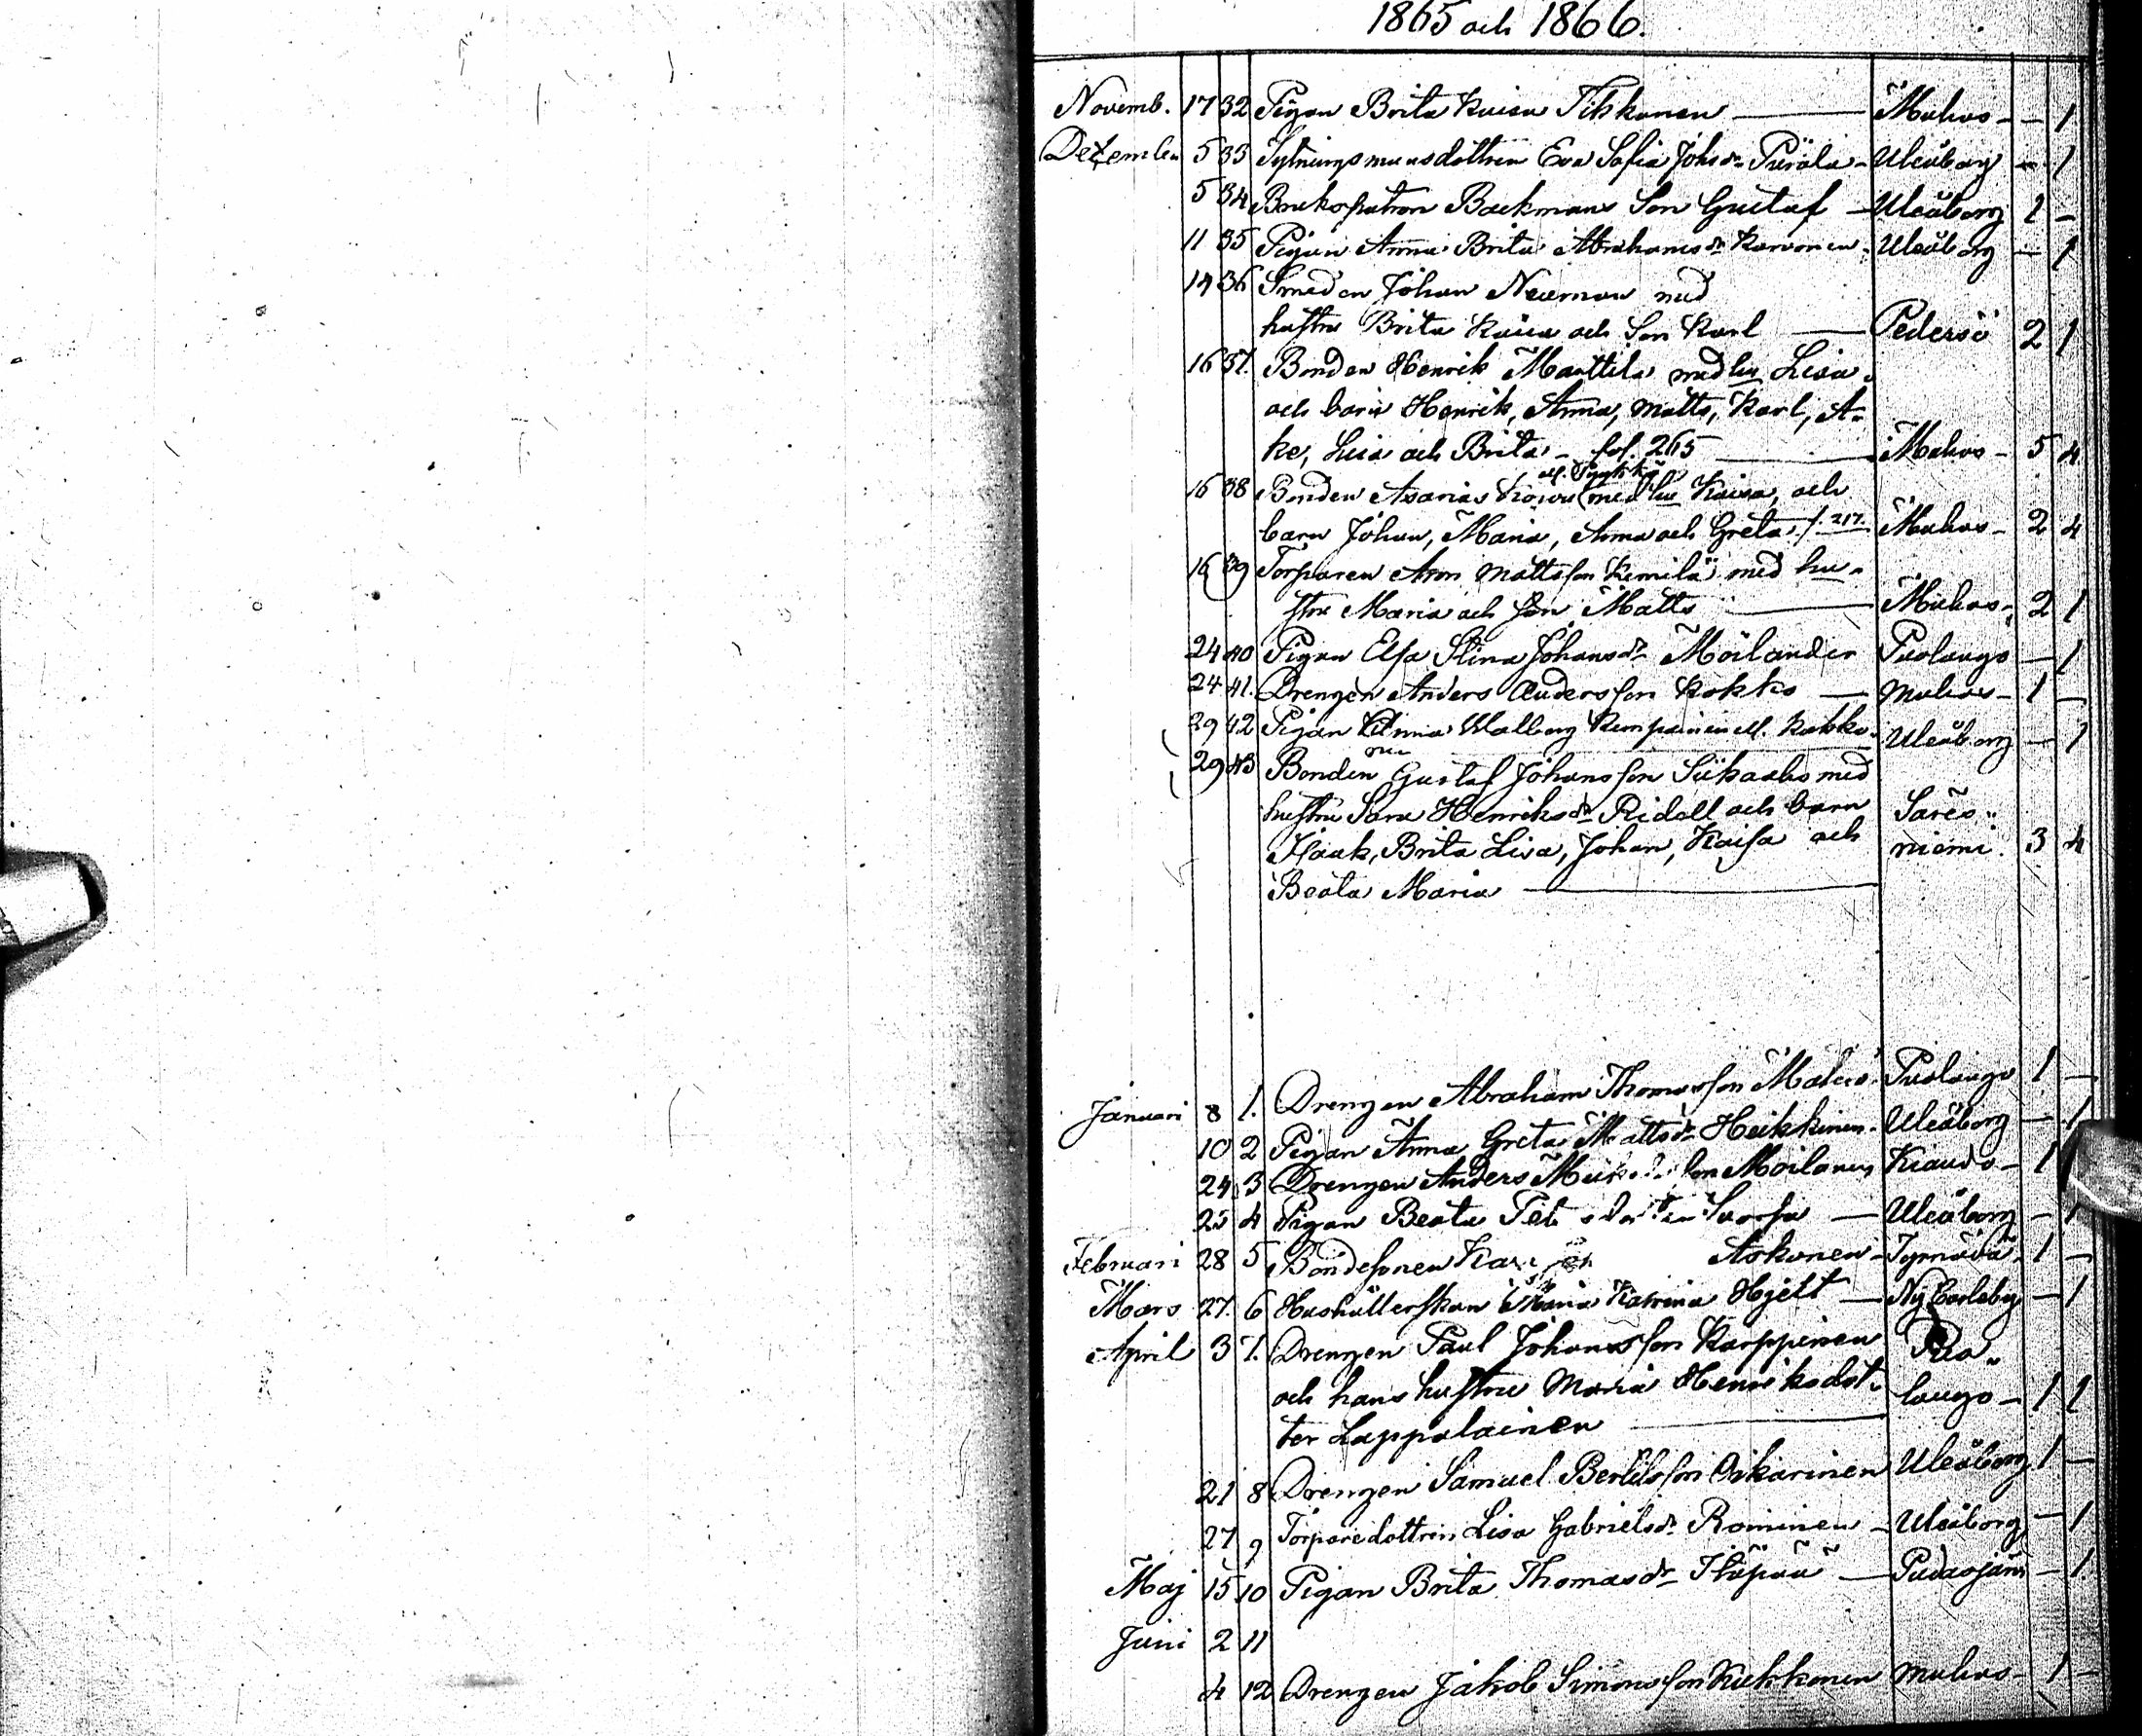 1865 och 1866.
Novemb. 17 32 Pigan Brita Kaisa Tikkanen — Muhos - - 1
Dezember 5 33 Sytningsmansdottren Eva Sofia Johsdr Purola - Uleåborg - 1
5 34 Bruksspatron Backmans Son Gustaf - Uleåborg 1 -
11 35 Pigan Anna Brita Abrahamsdr Karvonen - Uleåborg - 1
14 36 Smeden Johan Neuman med
hustru Brita Kaisa och Son Karl — Pedersö 2 1
16 37. Bonden Henrik Marttila med hu Lisa
och barn Henrik, Anna, Matts, Karl, A-
ke, Lisa och Brita - fol. 265 — Muhos - 5 4
16 38 Bonden Asarias med hu Kaisa, och
barn Johan, Maria, Anna och Greta f. 217. Muhos - 2 4
16 39 Torparen Aron Mattsson Kemilä med hu-
stru Maria och son Matts — Muhos - 2 1
24 40 Pigan Elsa Stina Johansdr Moilander Puolango — 1
24 41. Drengen Anders Andersson Kokko — Muhos - 1 -
29 42 Pigan Anna Walborg Kemppainen el. Kokko - Uleåborg — 1
29 43 Bonden Gustaf Johansson Siikaaho med
hustru Sara Henriksdr Ridell och barn Säres-
Isaak, Brita Lisa, Johan, Kaisa och niemi. 3 4
Beata Maria —
Januari 8 1. Drengen Abraham Thomasson Puolango 1 -
10 2 Pigan Anna Greta Mattsdr Heikkinen - Uleåborg - 1
24 3 Drengen Anders Moilanen - 1
25 4 Pigan Beata — Uleåborg - 1
Februari 28 5 Bondesonen Askonen - Tyrnävä - 1 -
Mars 27. 6 Hushållerskan Maria Katrina Hjelt — Ny Carleby - 1
April 3 7. Drengen Paul Johansson Karppinen Puo-
och hans hustru Maria Henriksdot- lango - 1 1
ter Lappalainen —
21 8 Drengen Samuel Bertilsson Oikarinen Uleåborg 1 -
27 9 Torparedottren Lisa Gabrielsdr Rominen - Uleåborg - 1
Maj 15 10 Pigan Brita Thomasdr — Pudasjärvi - 1
Juni 2 11
4 12 Drengen Jakob Simonsson Kukkonen Muhos - 1 -